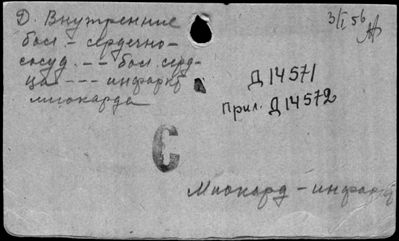 Д. Внутренние
бол. - сердечно-
сосуд. -- бол. серд-
ца --- инфаркт
миокарда
3/I 56
Д14571
Прил. Д14572
С
Миокард - инфаркт